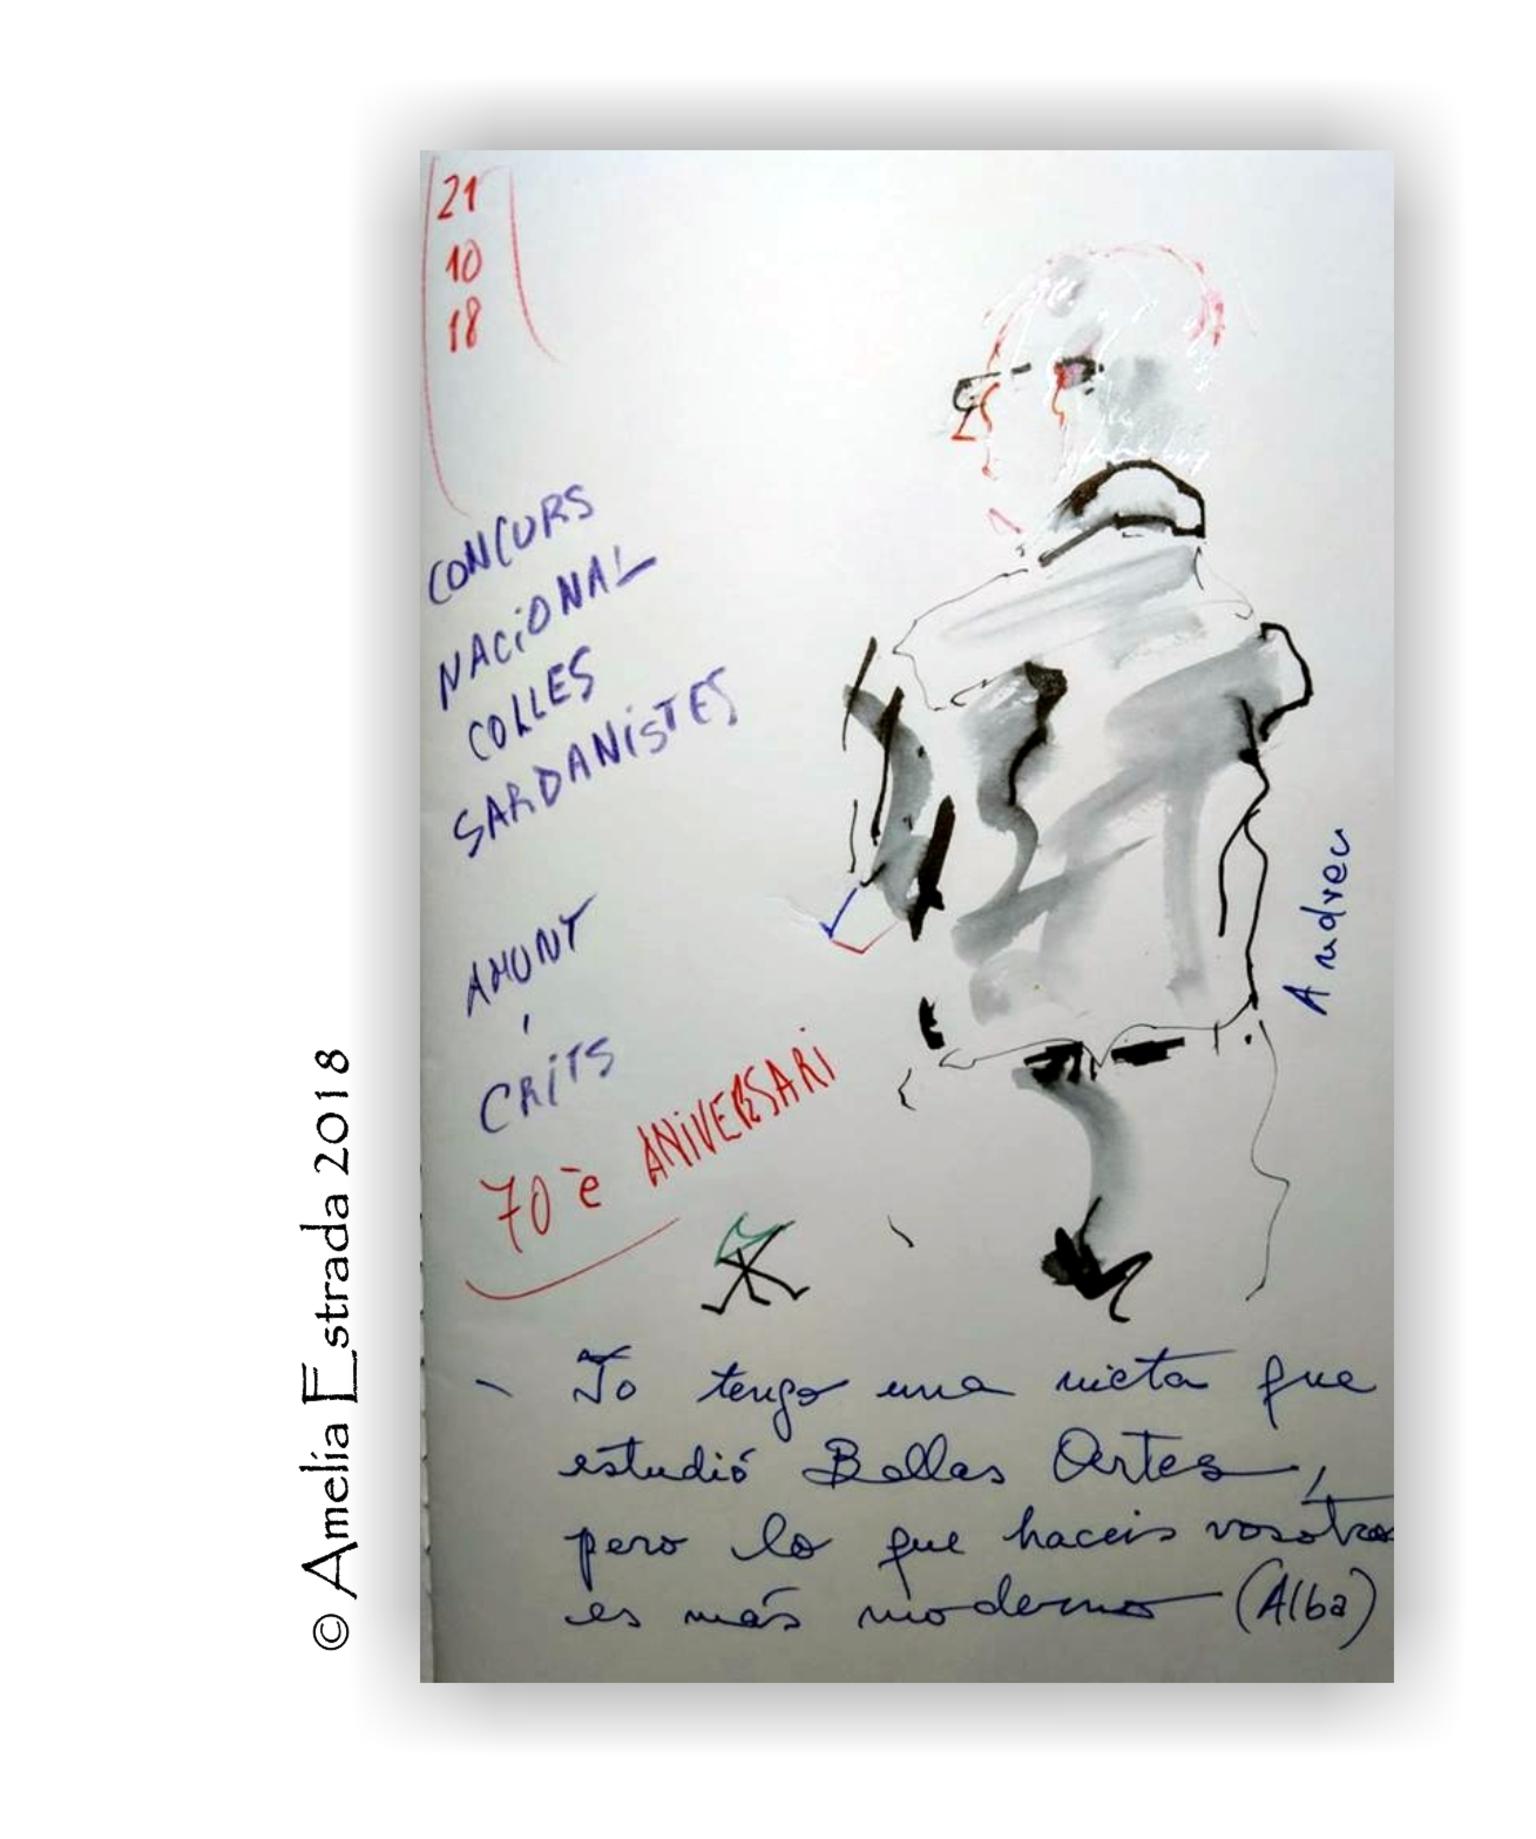 21
10
18
CONCURS
NACiONAL
COLLES
SARDANiSTES
AMUNT
i
CRiTS
70è ANiVERSARi
Andreu
- Yo tengo una nieta que
estudió Bellas Artes,
pero lo que haceis vosotros
es más moderno (Alba)
© Amelia Estrada 2018